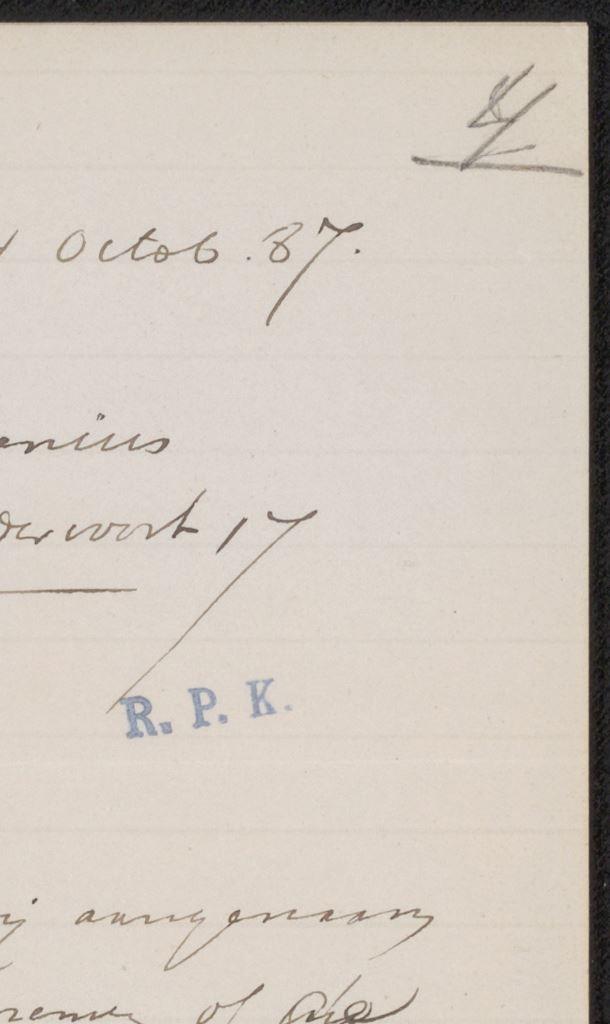 Octob. 87.
enius
derwort 17
R. P. K.
ij aangenaam
of die